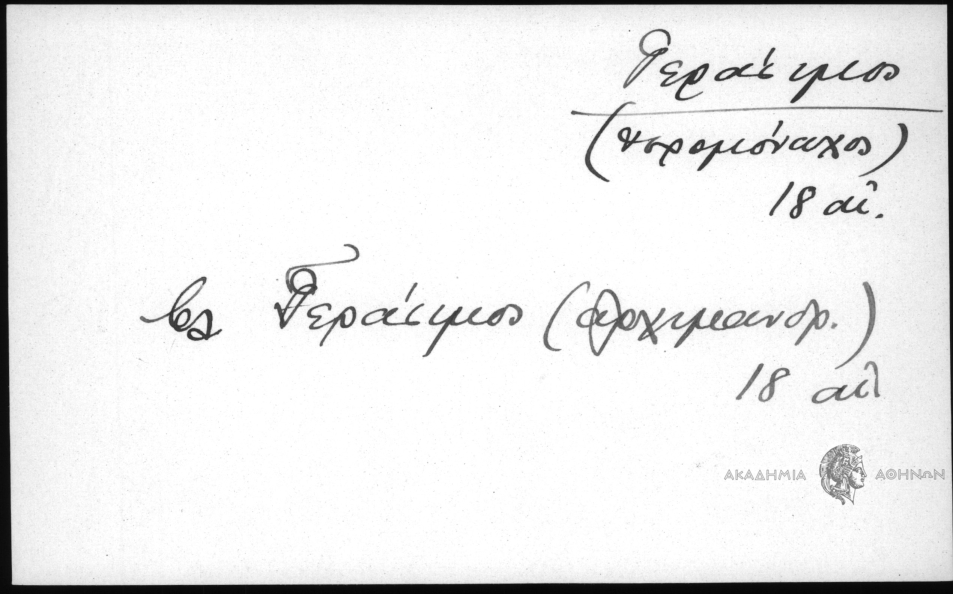 Γεράσιμος
(ιερομόναχος)
18 αι.
βλ Γεράσιμος (αρχιμανδρ.)
18 αι
ΑΚΑΔΗΜΙΑ ΑΘΗΝΩΝ